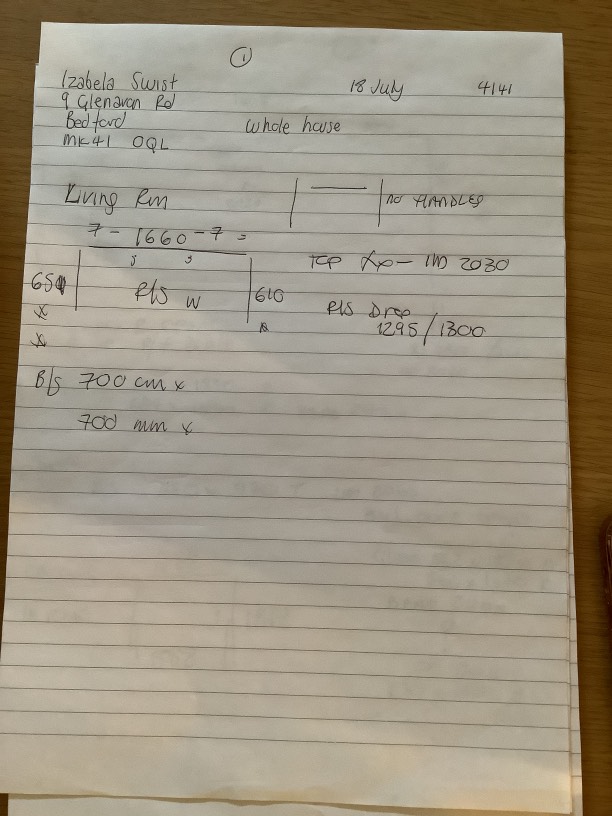 1
Izabela Swist 18 July 4141
9 Glenavon Rd
Bedford whole house
MK41 0QL
Living Rm no HANDLES
7 - 1660 - 7 =
5 5 TOP 2030
650 P/S W 610
x P/S Drop
x 1295/1300
B/S 700 cm x
700 mm x